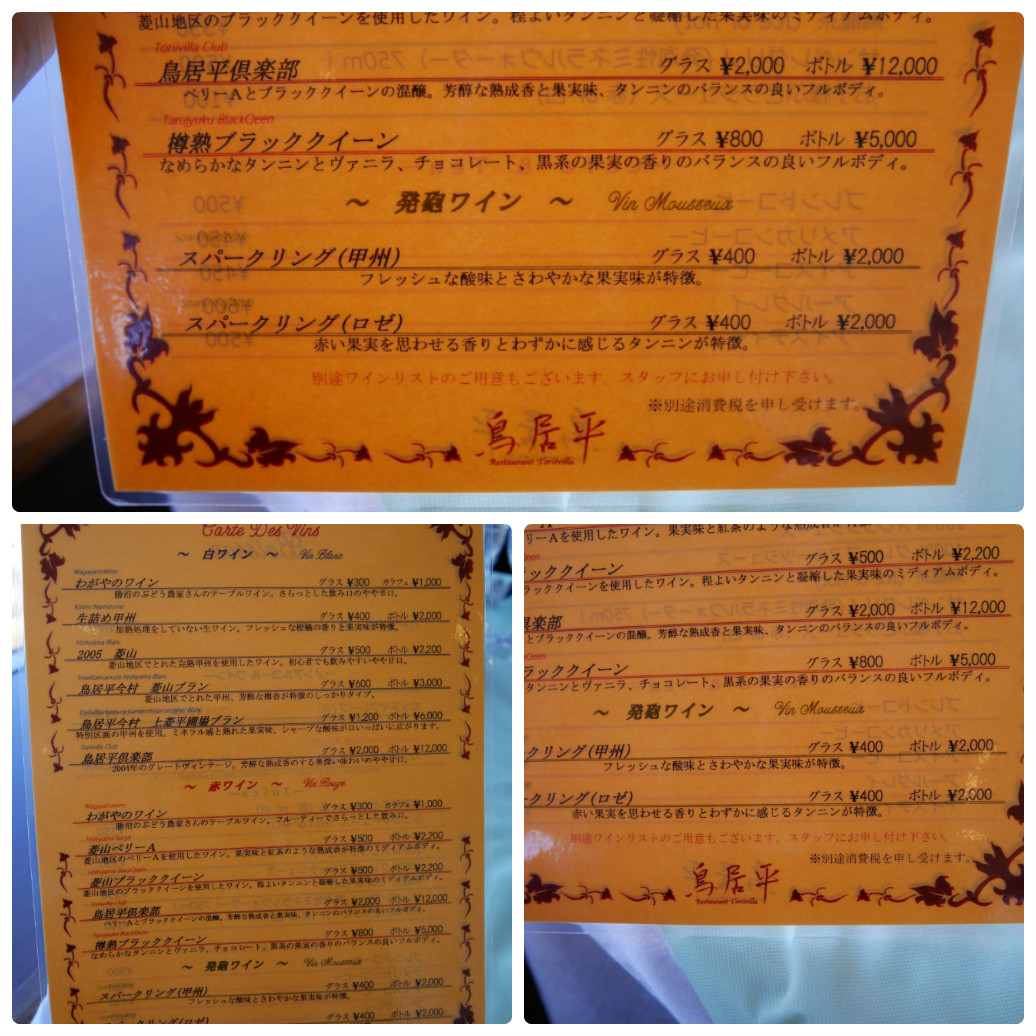 菱山地区のブラッククイーンを使用したワイン。程よいタンニンと凝縮した果実味のミディアムボディ。
Torivilla Club
鳥居平倶楽部 グラス ¥2,000 ボトル ¥12,000
ベリーAとブラッククイーンの混醸。芳醇な熟成香と果実味、タンニンのバランスの良いフルボディ。
Tarujyuku BlackQeen
樽熟ブラッククイーン グラス ¥800 ボトル ¥5,000
なめらかなタンニンとヴァニラ、チョコレート、黒系の果実の香りのバランスの良いフルボディ。
～ 発砲ワイン ～ Vin Mousseux
スパークリング(甲州) グラス ¥400 ボトル ¥2,000
フレッシュな酸味とさわやかな果実味が特徴。
スパークリング(ロゼ) グラス ¥400 ボトル ¥2,000
赤い果実を思わせる香りとわずかに感じるタンニンが特徴。
別途ワインリストのご用意もございます。スタッフにお申し付け下さい。
※別途消費税を申し受けます。
鳥居平
Restaurant Torivilla
Carte Des Vins
～ 白ワイン ～ Vin Blanc
WagayanoWine
わがやのワイン グラス ¥300 カラフェ ¥1,000
勝沼のぶどう農家さんのテーブルワイン。さらっとした飲み口のやや辛口。
生詰め甲州 グラス ¥400 ボトル ¥2,000
加熱処理をしていない生ワイン。フレッシュな柑橘の香りと果実味が特徴。
Hishiyama Blanc
2005 菱山 グラス ¥500 ボトル ¥2,200
菱山地区でとれた完熟甲州を使用したワイン。初心者でも飲みやすいやや甘口。
鳥居平今村 菱山ブラン グラス ¥600 ボトル ¥3,000
菱山地区でとれた甲州。芳醇な樽香が特徴のしっかりタイプ。
鳥居平今村 上菱平圃場ブラン グラス ¥1,200 ボトル ¥6,000
特別区画の甲州を使用。ミネラル感と熟れた果実味、シャープな酸味が口いっぱいに広がります。
Torivilla Club
鳥居平倶楽部 グラス ¥2,000 ボトル ¥12,000
2004年のグレートヴィンテージ。芳醇な熟成香のする奥深い味わいめやや甘口。
～ 赤ワイン ～ Vin Rouge
Wagayanowine
わがやのワイン グラス ¥300 カラフェ ¥1,000
勝沼のぶどう農家さんのテーブルワイン。フルーティーでさらっとした飲み口。
菱山ベリーA グラス ¥500 ボトル ¥2,200
菱山地区のベリーAを使用したワイン。果実味と紅茶のような熟成香が特徴のミディアムボディ。
Hishiyama BlackQeen
菱山ブラッククイーン グラス ¥500 ボトル ¥2,200
菱山地区のブラッククイーンを使用したワイン。程よいタンニンと凝縮した果実味のミディアムボディ。
Torivilla Club
鳥居平倶楽部 グラス ¥2,000 ボトル ¥12,000
ベリーAとブラッククイーンの混醸。芳醇な熟成香と果実味、タンニンのバランスの良いフルボディ。
Tarujyuku BlackQeen
樽熟ブラッククイーン グラス ¥800 ボトル ¥5,000
なめらかなタンニンとヴァニラ、チョコレート、黒系の果実の香りのバランスの良いフルボディ。
～ 発砲ワイン ～ Vin Mousseux
スパークリング(甲州) グラス ¥400 ボトル ¥2,000
フレッシュな酸味とさわやかな果実味が特徴。
スパークリング(ロゼ) グラス ¥400 ボトル ¥2,000
リーAを使用したワイン。果実味と紅茶のような熟成香が
Qeen
ラッククイーン グラス ¥500 ボトル ¥2,200
ラッククイーンを使用したワイン。程よいタンニンと凝縮した果実味のミディアムボディ。
倶楽部 グラス ¥2,000 ボトル ¥12,000
とブラッククイーンの混醸。芳醇な熟成香と果実味、タンニンのバランスの良いフルボディ。
Qeen
ラッククイーン グラス ¥800 ボトル ¥5,000
タンニンとヴァニラ、チョコレート、黒系の果実の香りのバランスの良いフルボディ。
～ 発砲ワイン ～ Vin Mousseux
クリング(甲州) グラス ¥400 ボトル ¥2,000
フレッシュな酸味とさわやかな果実味が特徴。
クリング(ロゼ) グラス ¥400 ボトル ¥2,000
赤い果実を思わせる香りとわずかに感じるタンニンが特徴。
別途ワインリストのご用意もございます。スタッフにお申し付け下さい。
※別途消費税を申し受けます。
鳥居平
Restaurant Torivilla